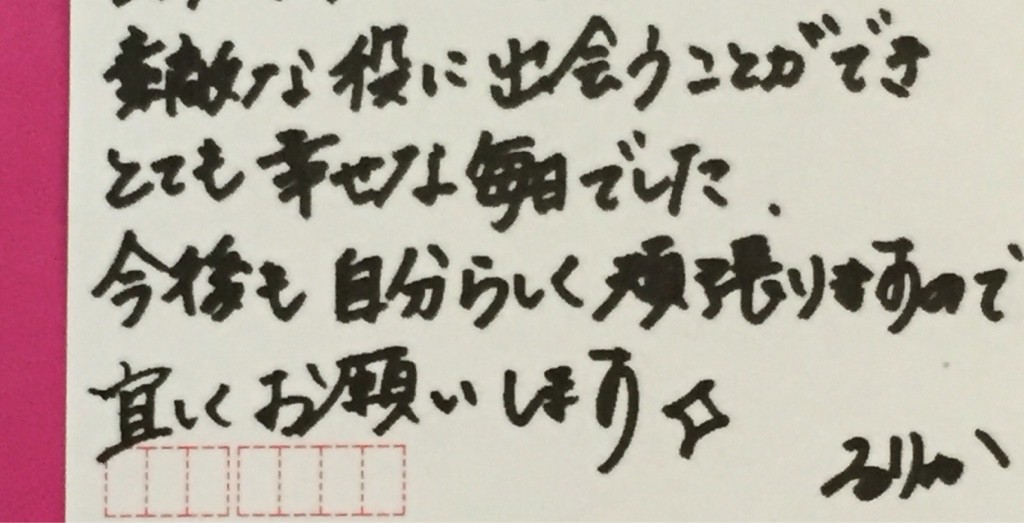 素敵な役に出会うことができ
とても幸せな毎日でした.
今後も自分らしく頑張りますので
宜しくお願いします☆
るりか